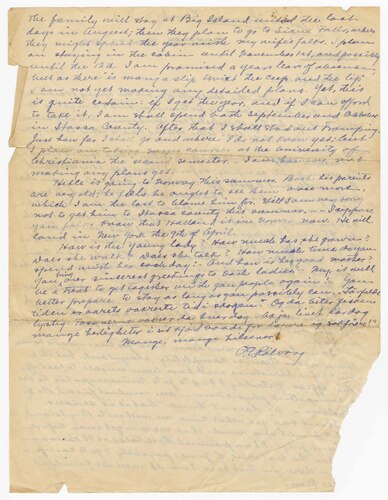 The family will stay at Big Island until the last
days in August, then they plan to go to Sioux Falls, where
they might spend the year with my wife's folks. I plan
on staying in the cabin until November 1st, and possibly
until the 15th. I am promised a year leave of absence,
but as there is many a slip twixt the cup and the lip
I am not yet making any detailed plans. Yet, this
is quite certain: if I get the year, and if I can afford
to take it, I am shall spend both September and October
in Itasca County. After that I shall start out tramping.
Just how far I shall go and where I do not know yet, but
I plan to take in at the University of
Christiania the second semester. I am, however, not
making any plans yet.
is going to Norway this summer. Both his parents
are very old; he feels he ought to see them once more,
which I am the last to blame him for. Still I am very sorry
not to get him to Itasca County this summer. — I suppose
you know that is in Norway now. He will
land in New York the 9th of April.
How is the young lady? How much has she grown?
Does she walk? Does she talk? How much time do you
spend with her each day? And how is her good mother?
Give our sincerest greetings to both ladies. My, it will
be a treat to get together with you people again! You
better prepare to stay as long as you possibly can.
Og da
mange
Mange, mange hilsener!